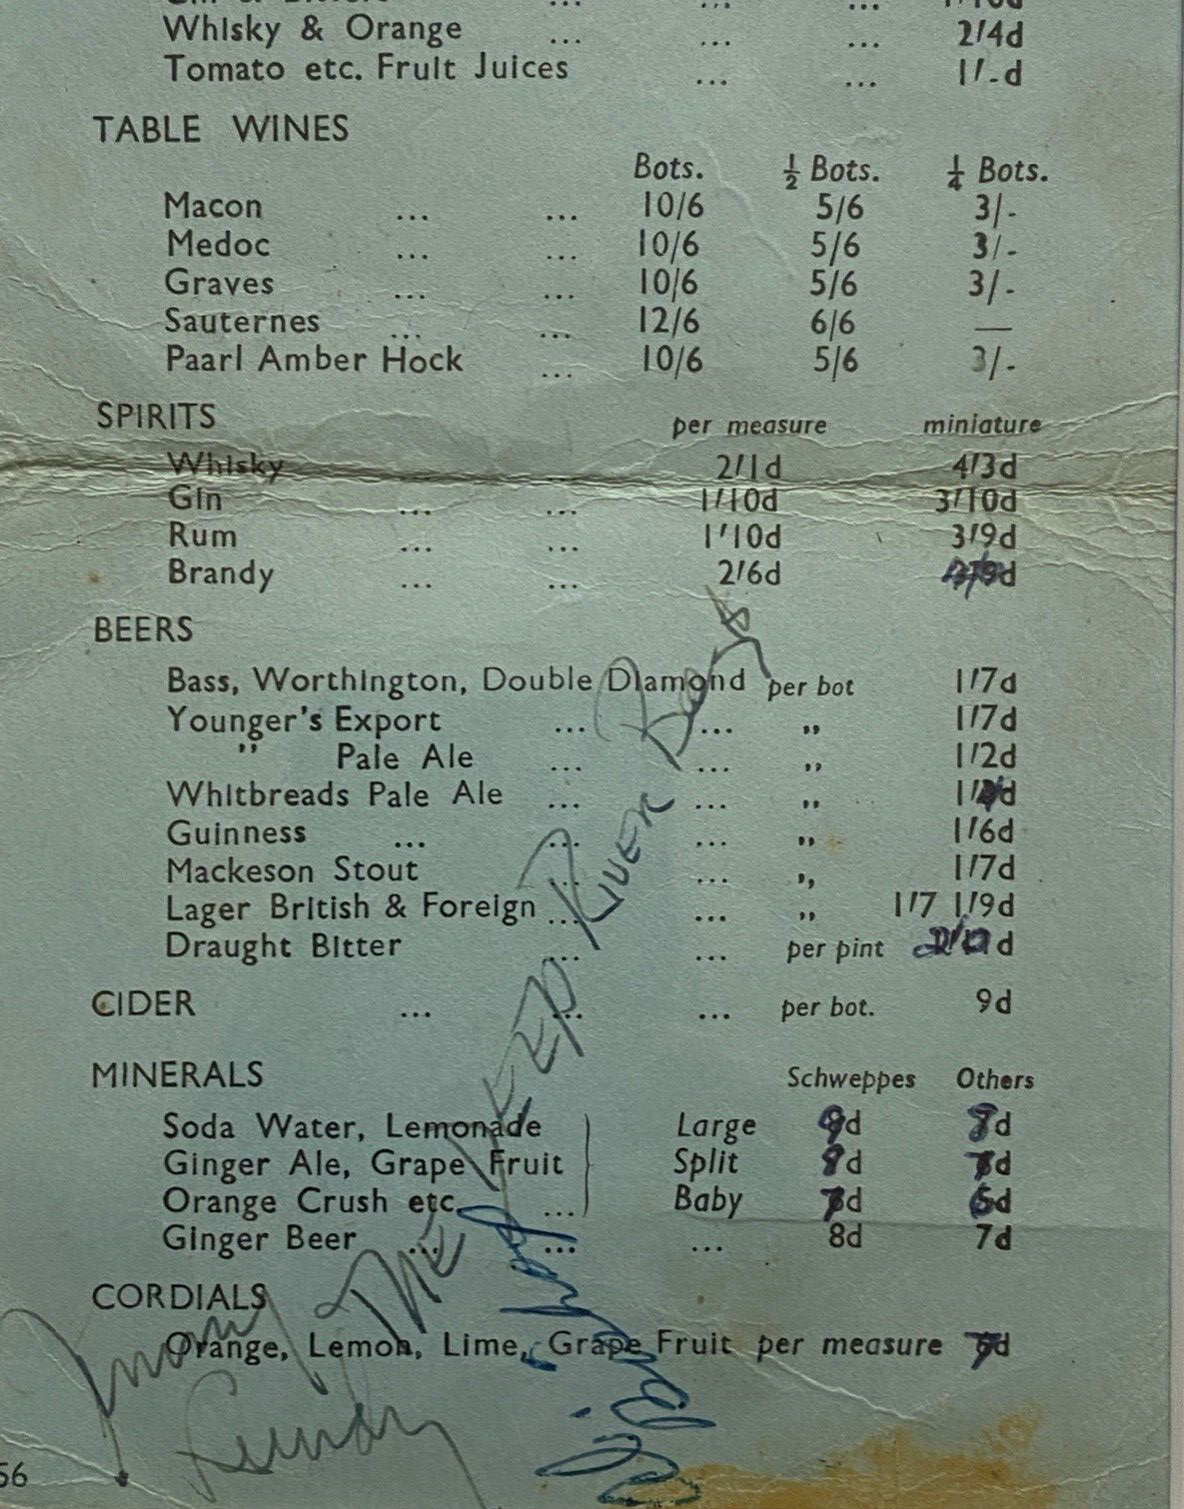 Whisky & Orange ... ... ... 2/4d
Tomato etc. Fruit Juices ... ... 1/-d
TABLE WINES
Bots. ½ Bots. ¼ Bots.
Macon ... ... 10/6 5/6 3/-
Medoc ... ... 10/6 5/6 3/-
Graves ... ... 10/6 5/6 3/-
Sauternes ... ... 12/6 6/6 —
Paarl Amber Hock ... 10/6 5/6 3/-
SPIRITS per measure miniature
Whisky 2/1d 4/3d
Gin ... ... 1/10d 3/10d
Rum ... ... 1/10d 3/9d
Brandy ... ... 2/6d
BEERS
Bass, Worthington, Double Diamond per bot 1/7d
Younger's Export ... ... ,, 1/7d
" Pale Ale ... ... ,, 1/2d
Whitbreads Pale Ale ... ... ,,
Guinness ... ... ... ,, 1/6d
Mackeson Stout ... ... ,, 1/7d
Lager British & Foreign ... ... ,, 1/7 1/9d
Draught Bitter ... ... per pint
CIDER ... ... ... per bot. 9d
MINERALS Schweppes Others
Soda Water, Lemonade Large 9d 8d
Ginger Ale, Grape Fruit Split
Orange Crush etc. ... Baby
Ginger Beer ... ... ... 8d 7d
CORDIALS
Orange, Lemon, Lime, Grape Fruit per measure
THE RED RIVER
56